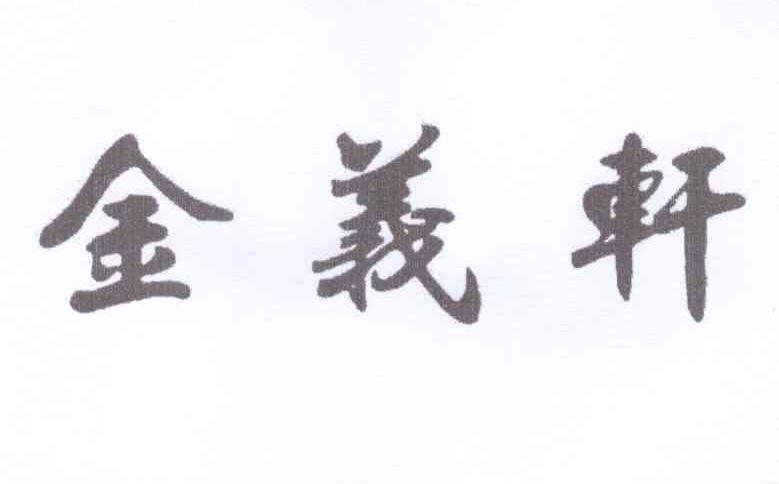 金義軒